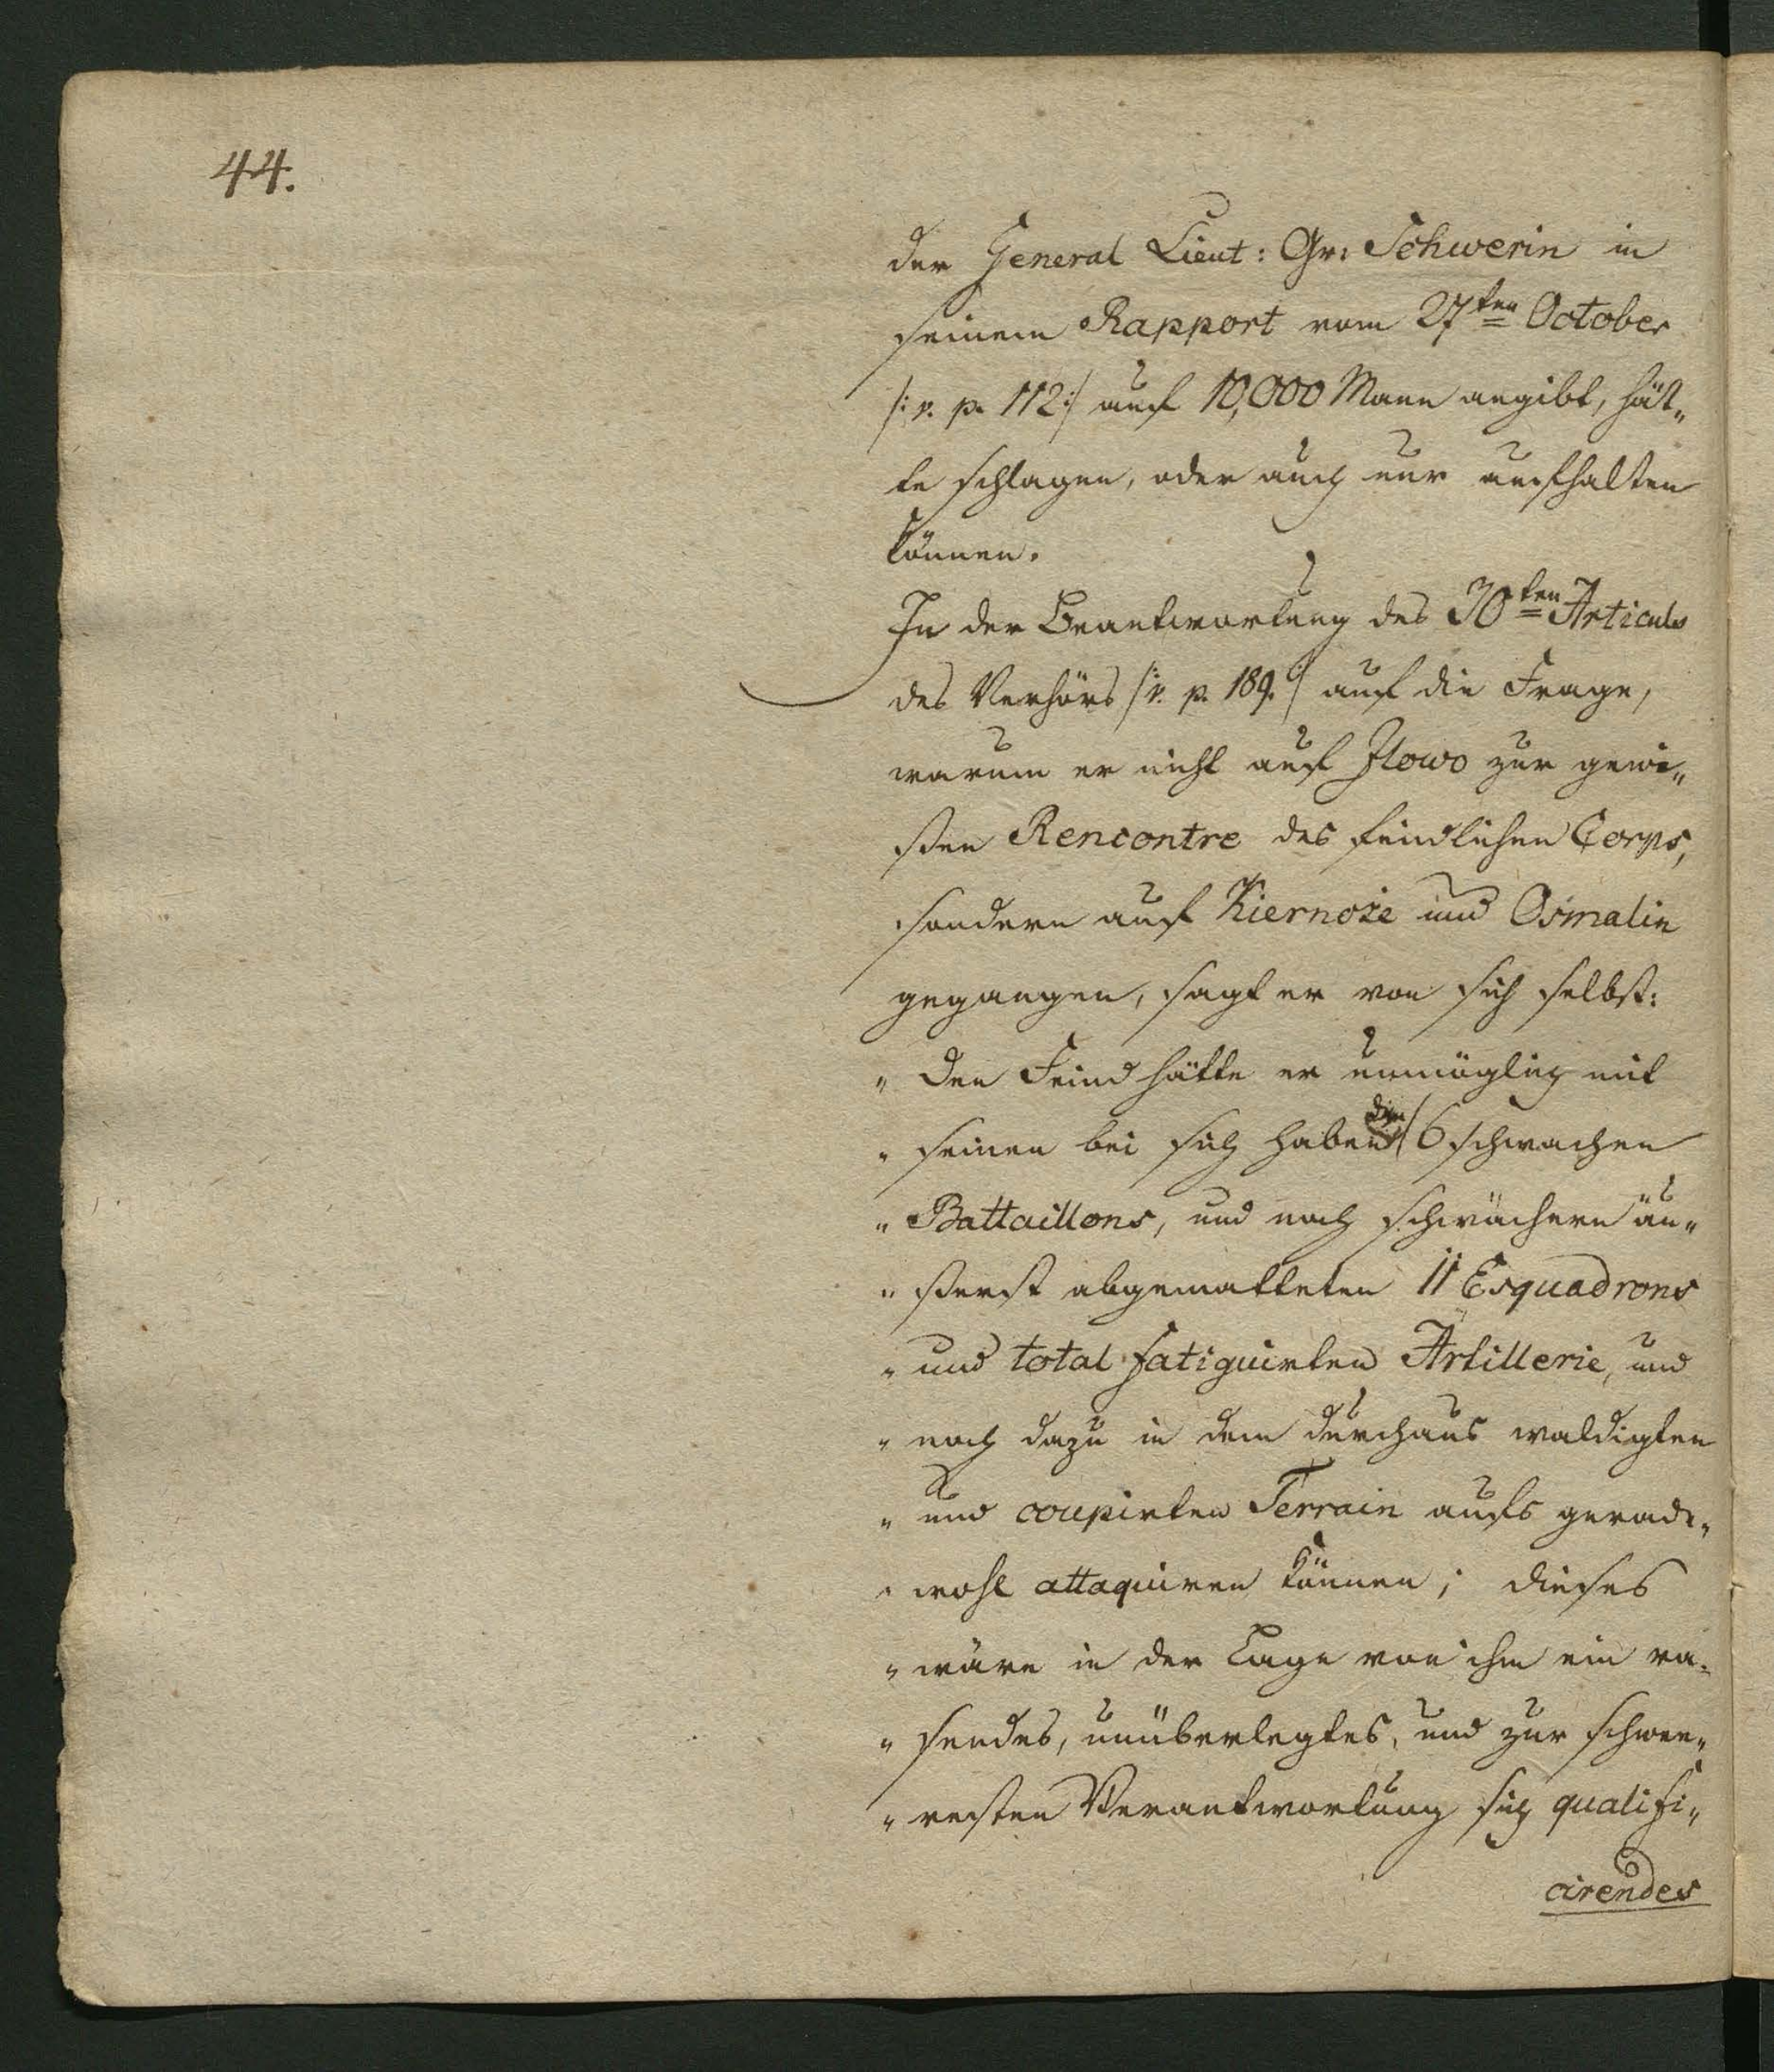 44.
der General Lieut: Gr: Schwerin in
seinem Rapport vom 27ten October
/: v. p. 112 :/ auf 10,000 Mann angibt, hät„
te schlagen, oder auch nur aufhalten
können.
In der Beantwortung des 30ten Articuls
des Verhörs /: v. p. 189. :/ auf die Frage,
warum er nicht auf Ilowo zur gewi„
ßen Rencontre des feindlichen Corps,
sondern auf Kiernoże und Osmalin
gegangen, sagt er von sich selbst:
„ Den Feind hätte er unmöglich mit
„ seinen bei sich habenden 6 schwachen
„ Battaillons, und noch schwächern äu„
„ ßerst abgematteten 11 Esquadrons
„ und total fatiguirten Artillerie, und
„ noch dazu in dem durchaus waldigten
„ und coupirten Terrain aufs gerade„
„ wohl attaquiren können; dieses
„ wäre in der Lage von ihm ein ra„
„ sendes, unüberlegtes, und zur schwee„
„ resten Verantwortung sich qualifi„
cirendes